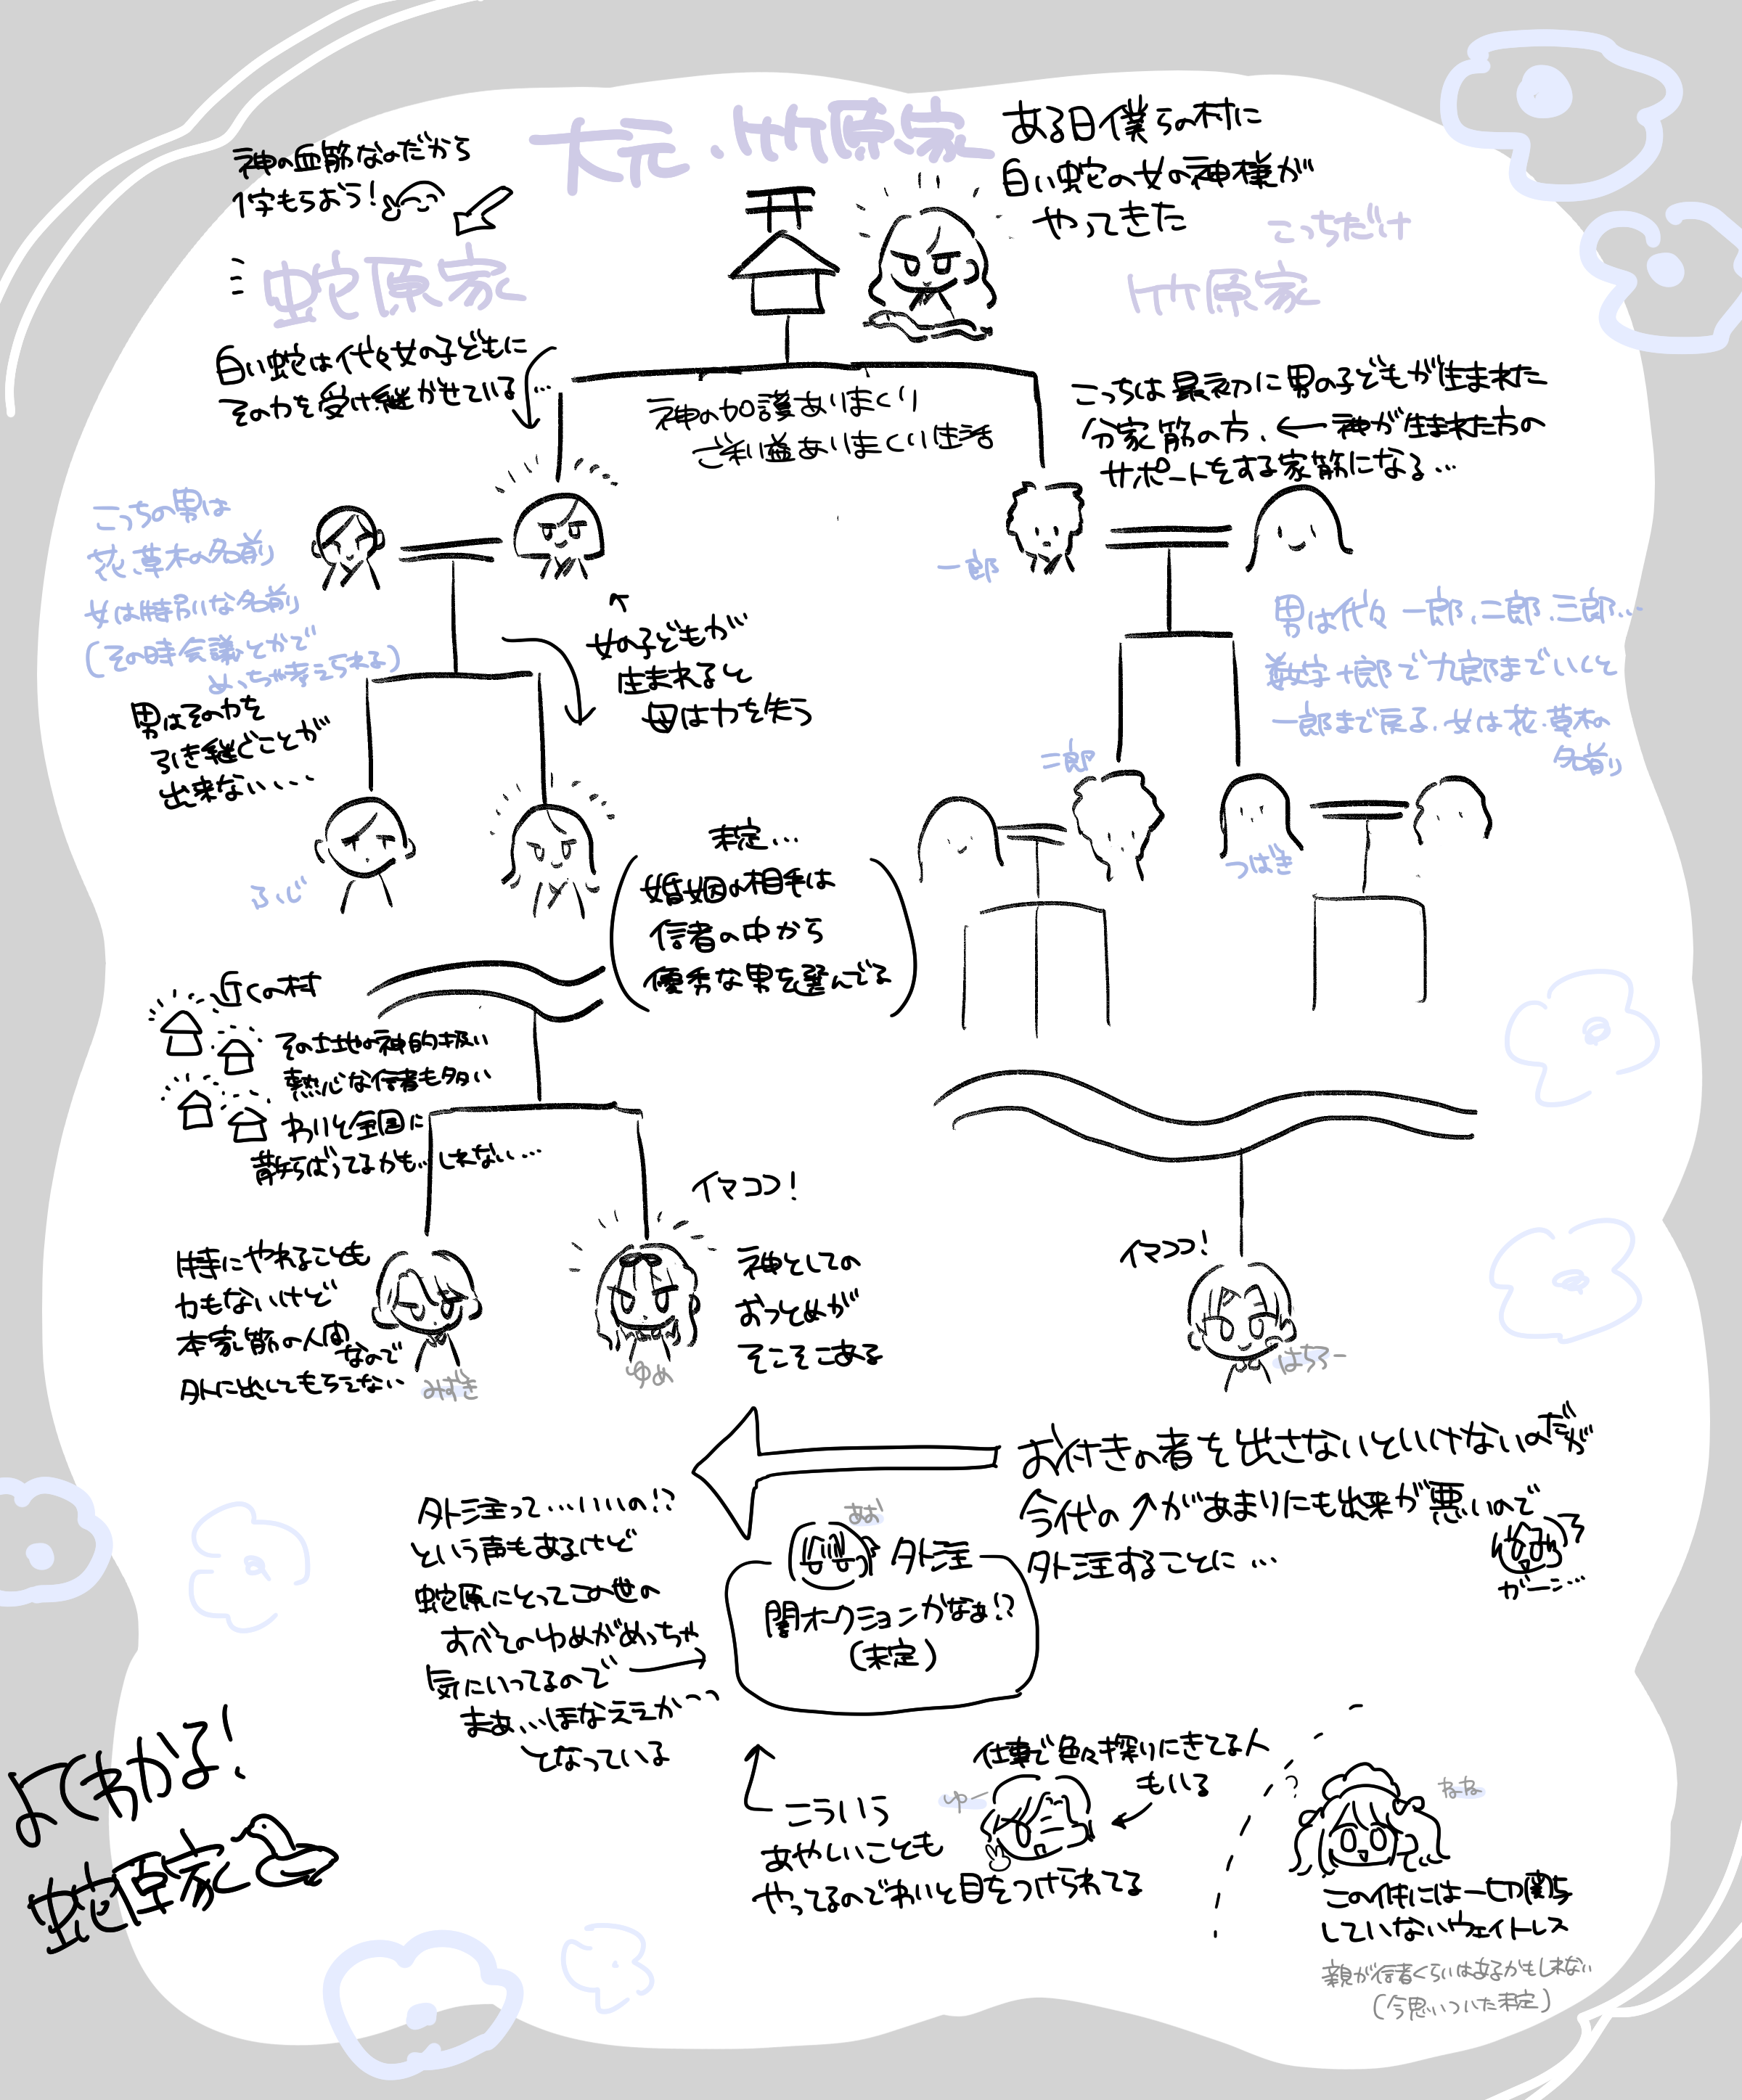 大元.竹原家
ある日僕らの村に
白い蛇の女の神様が
やってきた
神の血筋なのだから
1字もらおう!
蛇原家
こっちだけ
竹原家
白い蛇は代々女の子どもに
その力を受け継がせている...
神の加護ありまくり
ご利益ありまくり生活
こっちは最初に男の子どもが生まれた
分家筋の方、←神が生まれた方の
サポートをする家筋になる...
こっちの男は
花、草木の名前
女は特別な名前
(その時会議とかで
めっちゃ考えられる)
女の子どもが
生まれると
母は力を失う
男はその力を
引き継ぐことが
出来ない...
一郎
男は代々一郎、二郎、三郎...
数字+郎で九郎までいくと
一郎まで戻る、女は花・草木の
名前
二郎
つばき
ふじ
未定...
婚姻の相手は
信者の中から
優秀な男を選んでる
近くの村
その土地の神的扱い
熱心な信者も多い
わりと全国に
散らばってるかも...しれない...
イマココ!
特にやれることも
力もないけど
本家筋の人間なので
外に出してもらえない
みずき
ゆめ
神としての
おつとめが
そこそこある
イマココ!
はちろー
お付きの者を出さないといけないのだが
今代の↗があまりにも出来が悪いので
外注することに...
ガーン...
あお
外注
闇オークションかなぁ!?
(未定)
外注って...いいの!?
という声もあるけど
蛇原にとってこの世の
すべてのゆめがめっちゃ
気にいってるので→
まあ...ほなええか〜っ
となっている
こういう
あやしいことも
やってるのでわいと目をつけられてる
仕事で色々探りにきてる人
もいる
ゆー
?
ねね
この件には一切関与
していないウェイトレス
親が信者くらいはあるかもしれない
(今思いついた未定)
よくわかる!
蛇原家